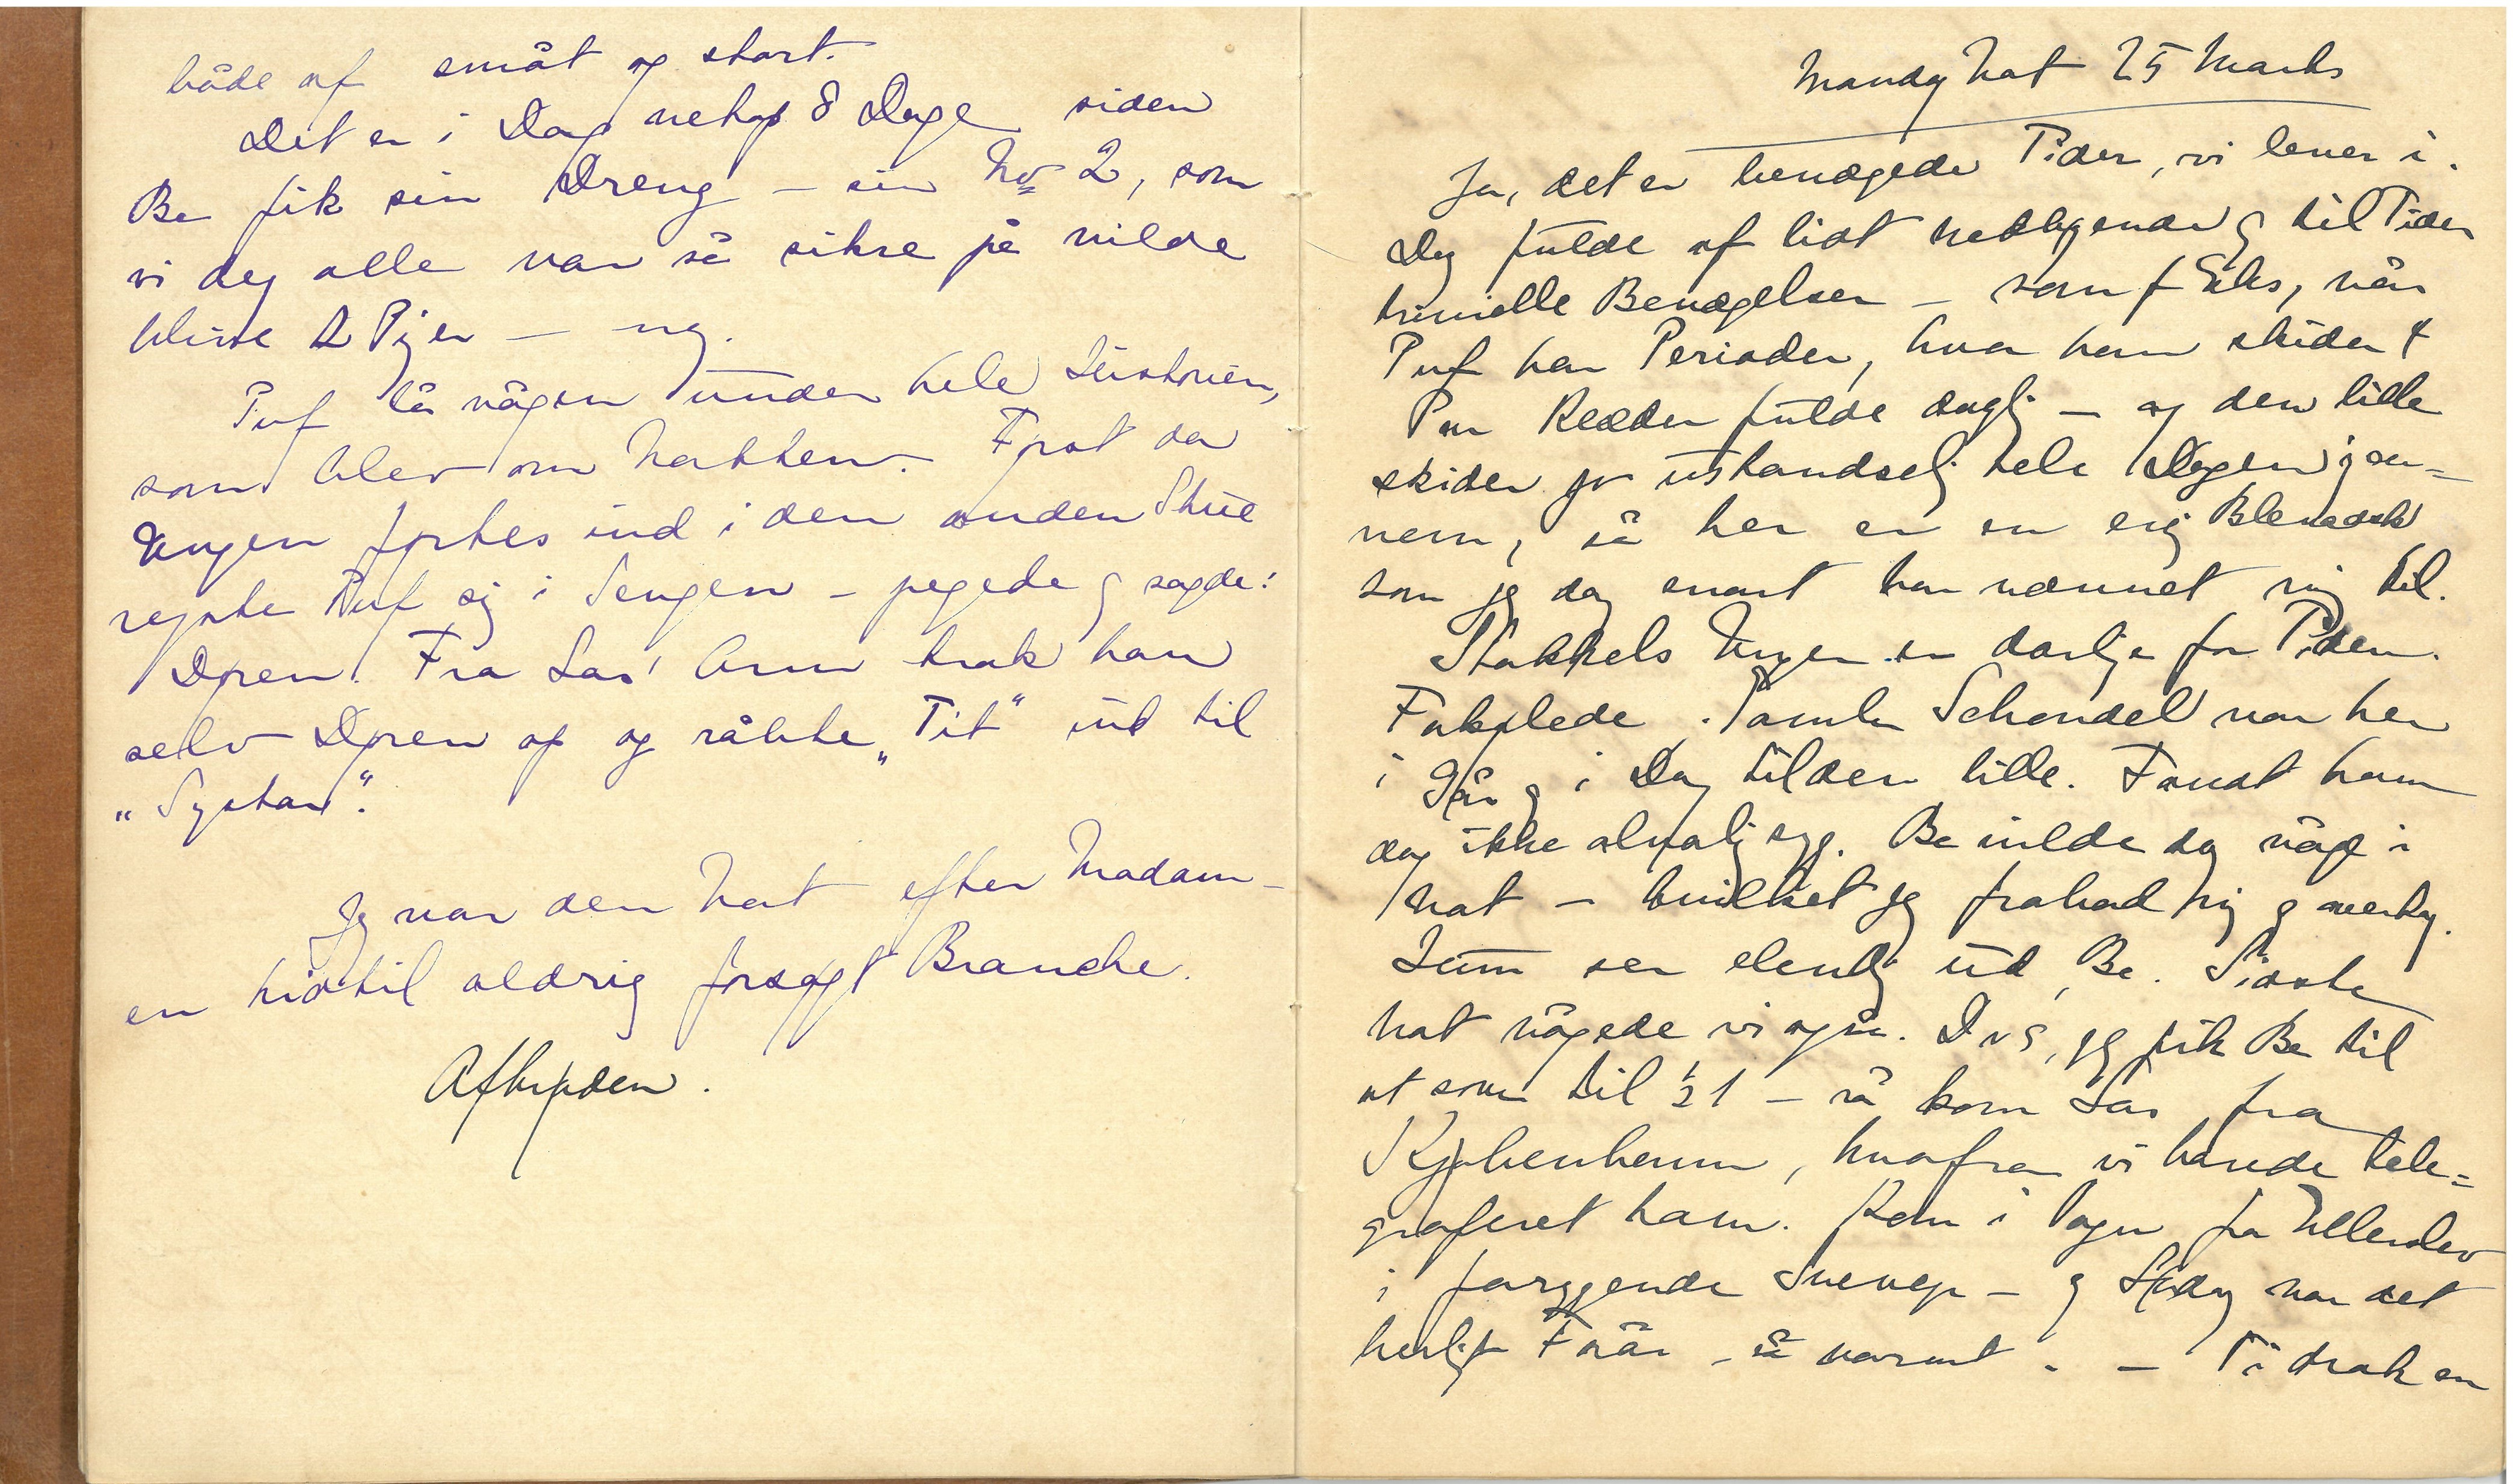 både af småt og stort.
Det er i Dag netop 8 Dage siden
Be fik sin Dreng – sin No 2, som
vi dog alle var så sikre på vilde
blive 1 Pige –
Puf lå vågen under hele Historien,
som blev om Natten. Først da
Ungen førtes ind i den anden Stue
rejste Puf sig i Sengen – pegede og sagde:
Døren. Fra Las' Arm trak han
selv Døren op og råbte „Tit" ind til
„Systar".
Jeg var den Nat efter Madam –
en hidtil aldrig forsøgt Branche.
Afbrudden.
Mandag Nat 25 Marts
Ja, det er bevægede Tider, vi lever i.
Dog fulde af lidt nedslående og til Tider
trivielle Bevægelser – som f Eks, når
Puf har Perioder, hvor han skider 4
Par Klæder fulde dagli – og den lille
skider jo ustandseli hele Dagen igen=
nem, så her er en evig Blevask,
som jeg dog snart har vænnet mig til.
Stakkels Unger er darlje for Tiden.
Forkølede. Gamle Schondel var her
i Går og i Dag til den lille. Fandt ham
dog ikke alvorlig syg. Be vilde dog våge i
Nat – hvilket jeg frabad mig
Hun ser elendig ud, Be. Sidste
Nat vågede vi også. D v s, jeg fik Be til
at sove til ½1 – så kom Las fra
Kjøbenhavn, hvorfra vi havde tele=
graferet ham. Kom i Vogn fra Ullerslev
i forrygende Snevejr – og i Dag var det
herligt Forår – så varmt. – Vi drak en